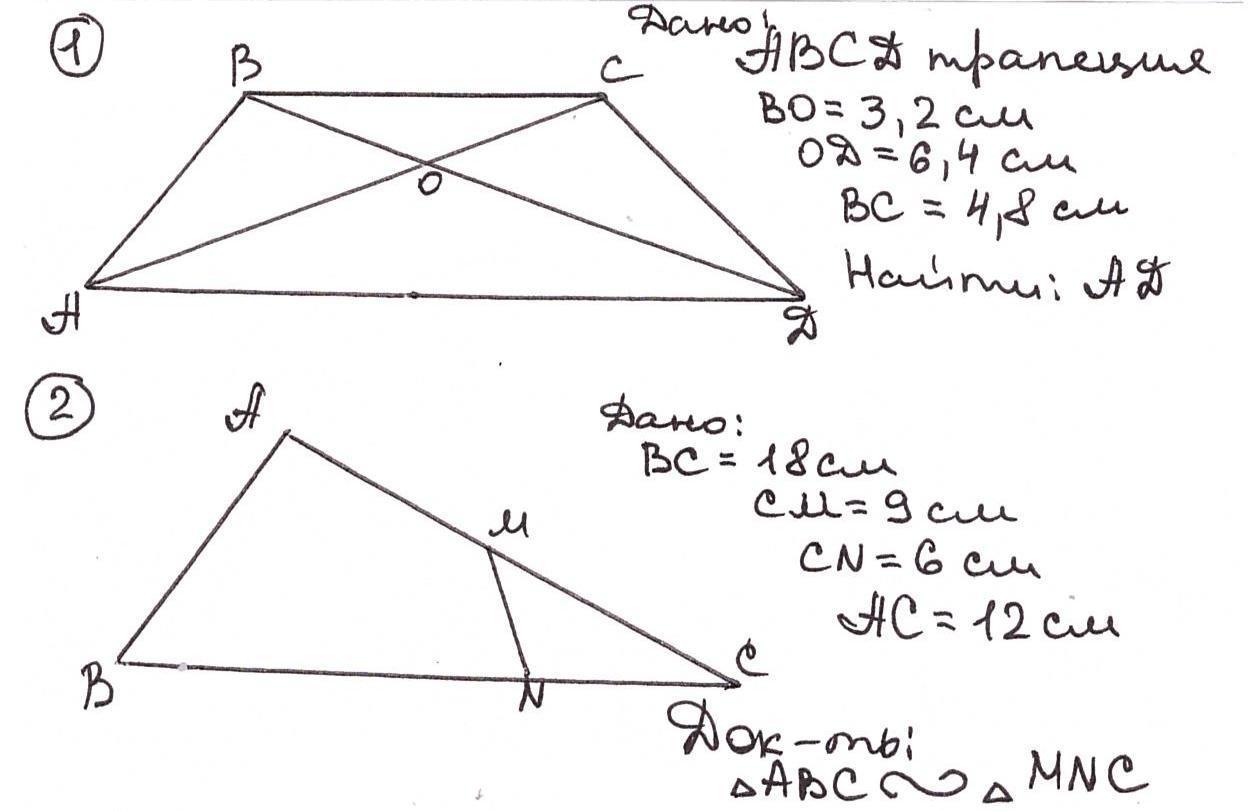 1
Дано:
B
C
ABCД трапеция
BO = 3,2 см
OД = 6,4 см
O
BC = 4,8 см
Найти: AД
A
Д
2
A
Дано:
BC = 18 см
CM = 9 см
M
CN = 6 см
AC = 12 см
B
N
C
Док-ть:
△ABC ∾ △MNC